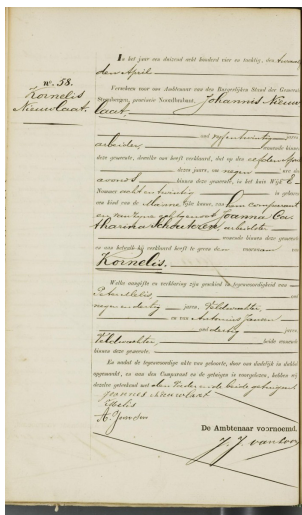 No. 58.
Kornelis
Nieuwlaat.
In het jaar een duizend acht honderd vier en tachtig, den
den April
Verscheen voor ons Ambtenaar van den Burgerlijken Stand der Gemeente
provincie Noordbrabant, Johannis Nieuw
laat,
oud vijfentwintig jaren,
arbeider, wonende binnen
deze gemeente, dewelke ons heeft verklaard, dat op den elfden April
dezes jaars, om negen ure des
avonds, binnen deze gemeente, in het huis Wijk E
Nommer achtentwintig is geboren
een kind van de Mannelijke kunne, van hem comparant
en van zijne echtgenoote Joanna Cor
arbeidster
wonende binnen deze gemeente
en aan hetzelve hij verklaard heeft te geven den voornaam van
Kornelis.
Welke aangifte en verklaring zijn geschied in tegenwoordigheid van
oud
negenendertig jaren, Veldwachter,
en van Antonius Jansen
oud dertig jaren,
Veldwachter, beide wonende
binnen deze gemeente.
En nadat de tegenwoordige akte van geboorte, door ons dadelijk in dubbel
opgemaakt, en aan den Comparant en de getuigen is voorgelezen, hebben wij
dezelve geteekend met den Vader en de beide getuigen
Joannes Nieuwlaat
A. Jansen
De Ambtenaar voornoemd,
J. J. van Loon